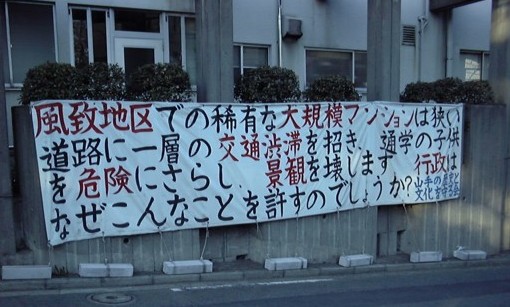 風致地区での稀有な大規模マンションは狭い
道路に一層の交通渋滞を招き、通学の子供
を危険にさらし、景観を壊します 行政は
なぜこんなことを許すのでしょうか?
山手の歴史と